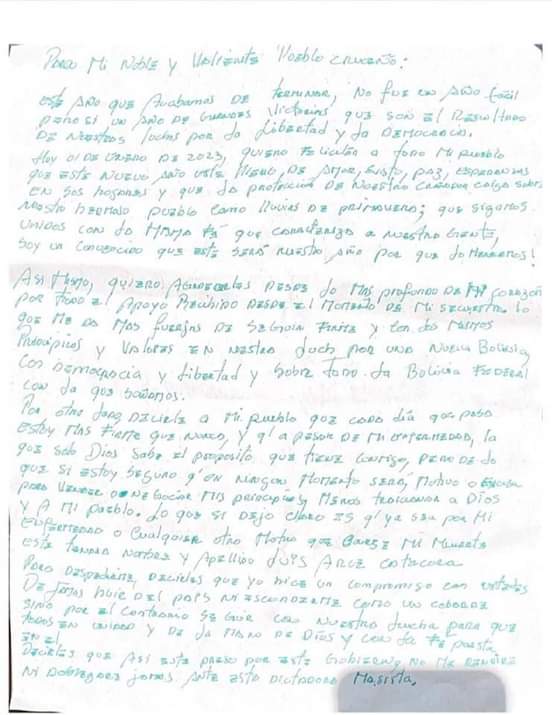 Para Mi Noble y Valiente Pueblo cruceño:
este año que Acabamos DE terminar, No fue un Año fácil
pero si un año DE Grandes Victorias que son el Resultado
DE Nuestras luchas por la Libertad y la Democracia.
Hoy 01 DE Enero DE 2023, quiero Felicitar a todo Mi pueblo
que este Nuevo Año este lleno, DE Amor, paz, esperanzas
EN sus hogares y que la protección DE Nuestro Creador caiga sobre
Nuestro hermoso pueblo como lluvias de primavera; que sigamos
Unidos con la Misma Fé que caracteriza a nuestra Gente,
Soy un convencido que este Será nuestro año por que lo Merecemos!
Asi Mismo, quiero Agradecerles DESDE lo Mas profundo DE Mi corazón
por todo el Apoyo Recibido DESDE el Momento DE Mi secuestro lo
que ME da Mas fuerzas DE Seguir Firme y con los Mismos
Principios y Valores EN nuestra Lucha por una Nueva Bolivia,
Con Democracia y Libertad y Sobre todo la Bolivia FEDERAL
con la que soñamos.
Por otro lado, Decirle a Mi pueblo que cada día que pasa
estoy Mas Firme que Nunca, y q' a pesar DE Mi enfermedad, la
que solo Dios Sabe el proposito que tiene conmigo, pero DE lo
que si estoy Seguro q' en Ningun Momento será, Motivo o Excusa
para Vender o NEgociar Mis principios y Menos traicionar a Dios
y A Mi pueblo. Lo que si Dejo claro es q' ya sea por Mi
enfermedad o Cualquier otro Motivo que Cause Mi Muerte
este tendra Nombre y Apellido Luis Arce catacora
Para despedirme, Decirles que yo hice un compromiso con ustedes
De jamas huir del pais Ni esconderme como un cobarde
sino por el contrario Seguir con Nuestra Lucha para que
todos EN unidad y DE la Mano DE Dios y con la Fé puesta
en el.
Decirles que Asi este preso por este Gobierno, no Me Rendiré
Ni Doblegare jamas Ante esta Dictadura Masista.